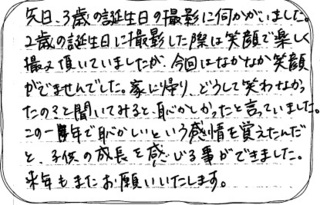 先日、3歳の誕生日の撮影に伺がいました。
2歳の誕生日に撮影した際は笑顔で楽しく
撮って頂いていましたが、今回はなかなか笑顔
がでませんでした。家に帰り、どうして笑わなかっ
たの？と聞いてみると、恥かしかったと言っていました。
この一年で恥がしいという感情を覚えたんだ
と、子供の成長を感じる事ができました。
来年もまたお願いいたします。